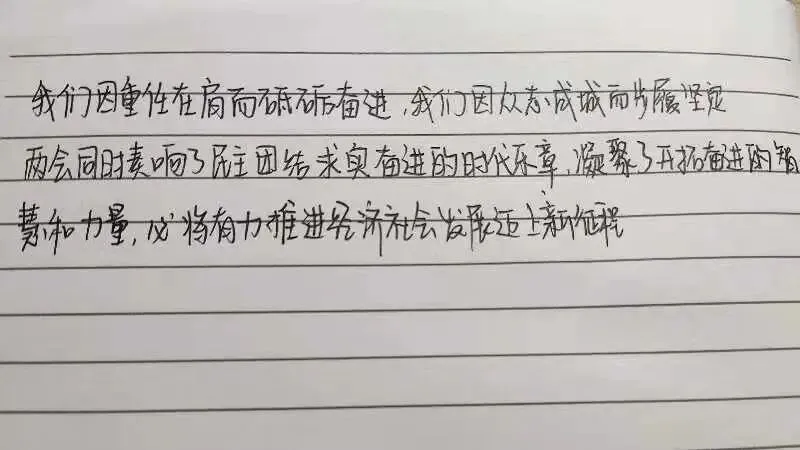 我们因重任在肩而砥砺奋进,我们因众志成城而步履坚定
两会同时奏响了民主团结求实奋进的时代乐章,凝聚了开拓奋进的智
慧和力量,必将有力推进经济社会发展迈上新征程